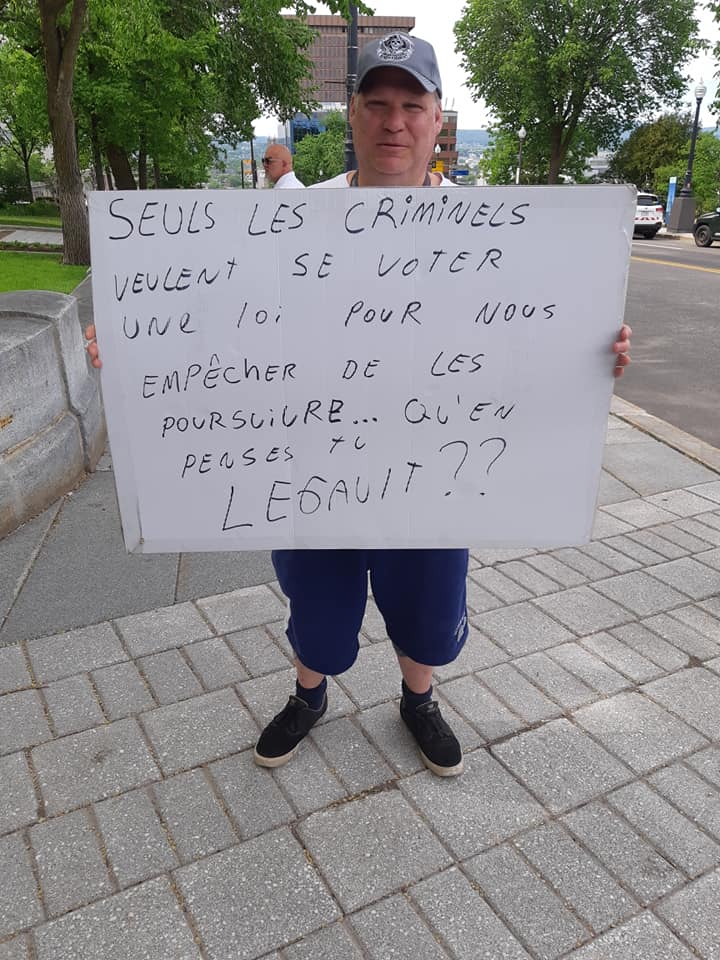 SEULS LES CRIMINELS
VEULENT SE VOTER
UNE loi POUR NOUS
EMPÊCHER DE LES
POURSUIVRE... QU'EN
PENSES TU
LEGAULT ??